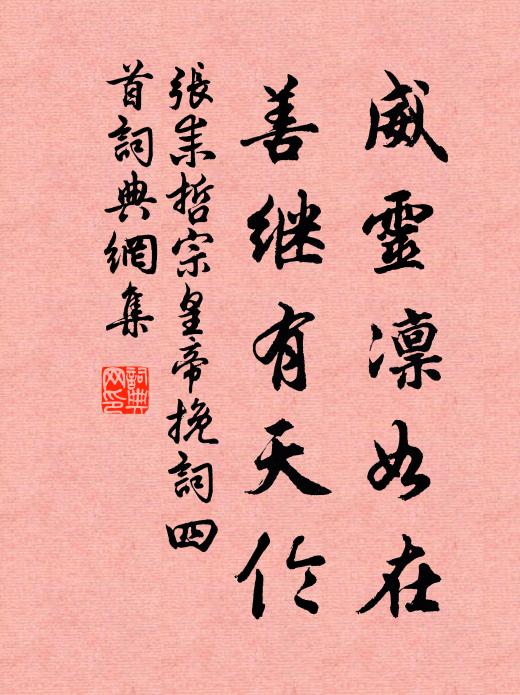 威靈凛如在
善继有天伦
張耒哲宗皇帝挽詞四
首詞典網集
詞典
网印